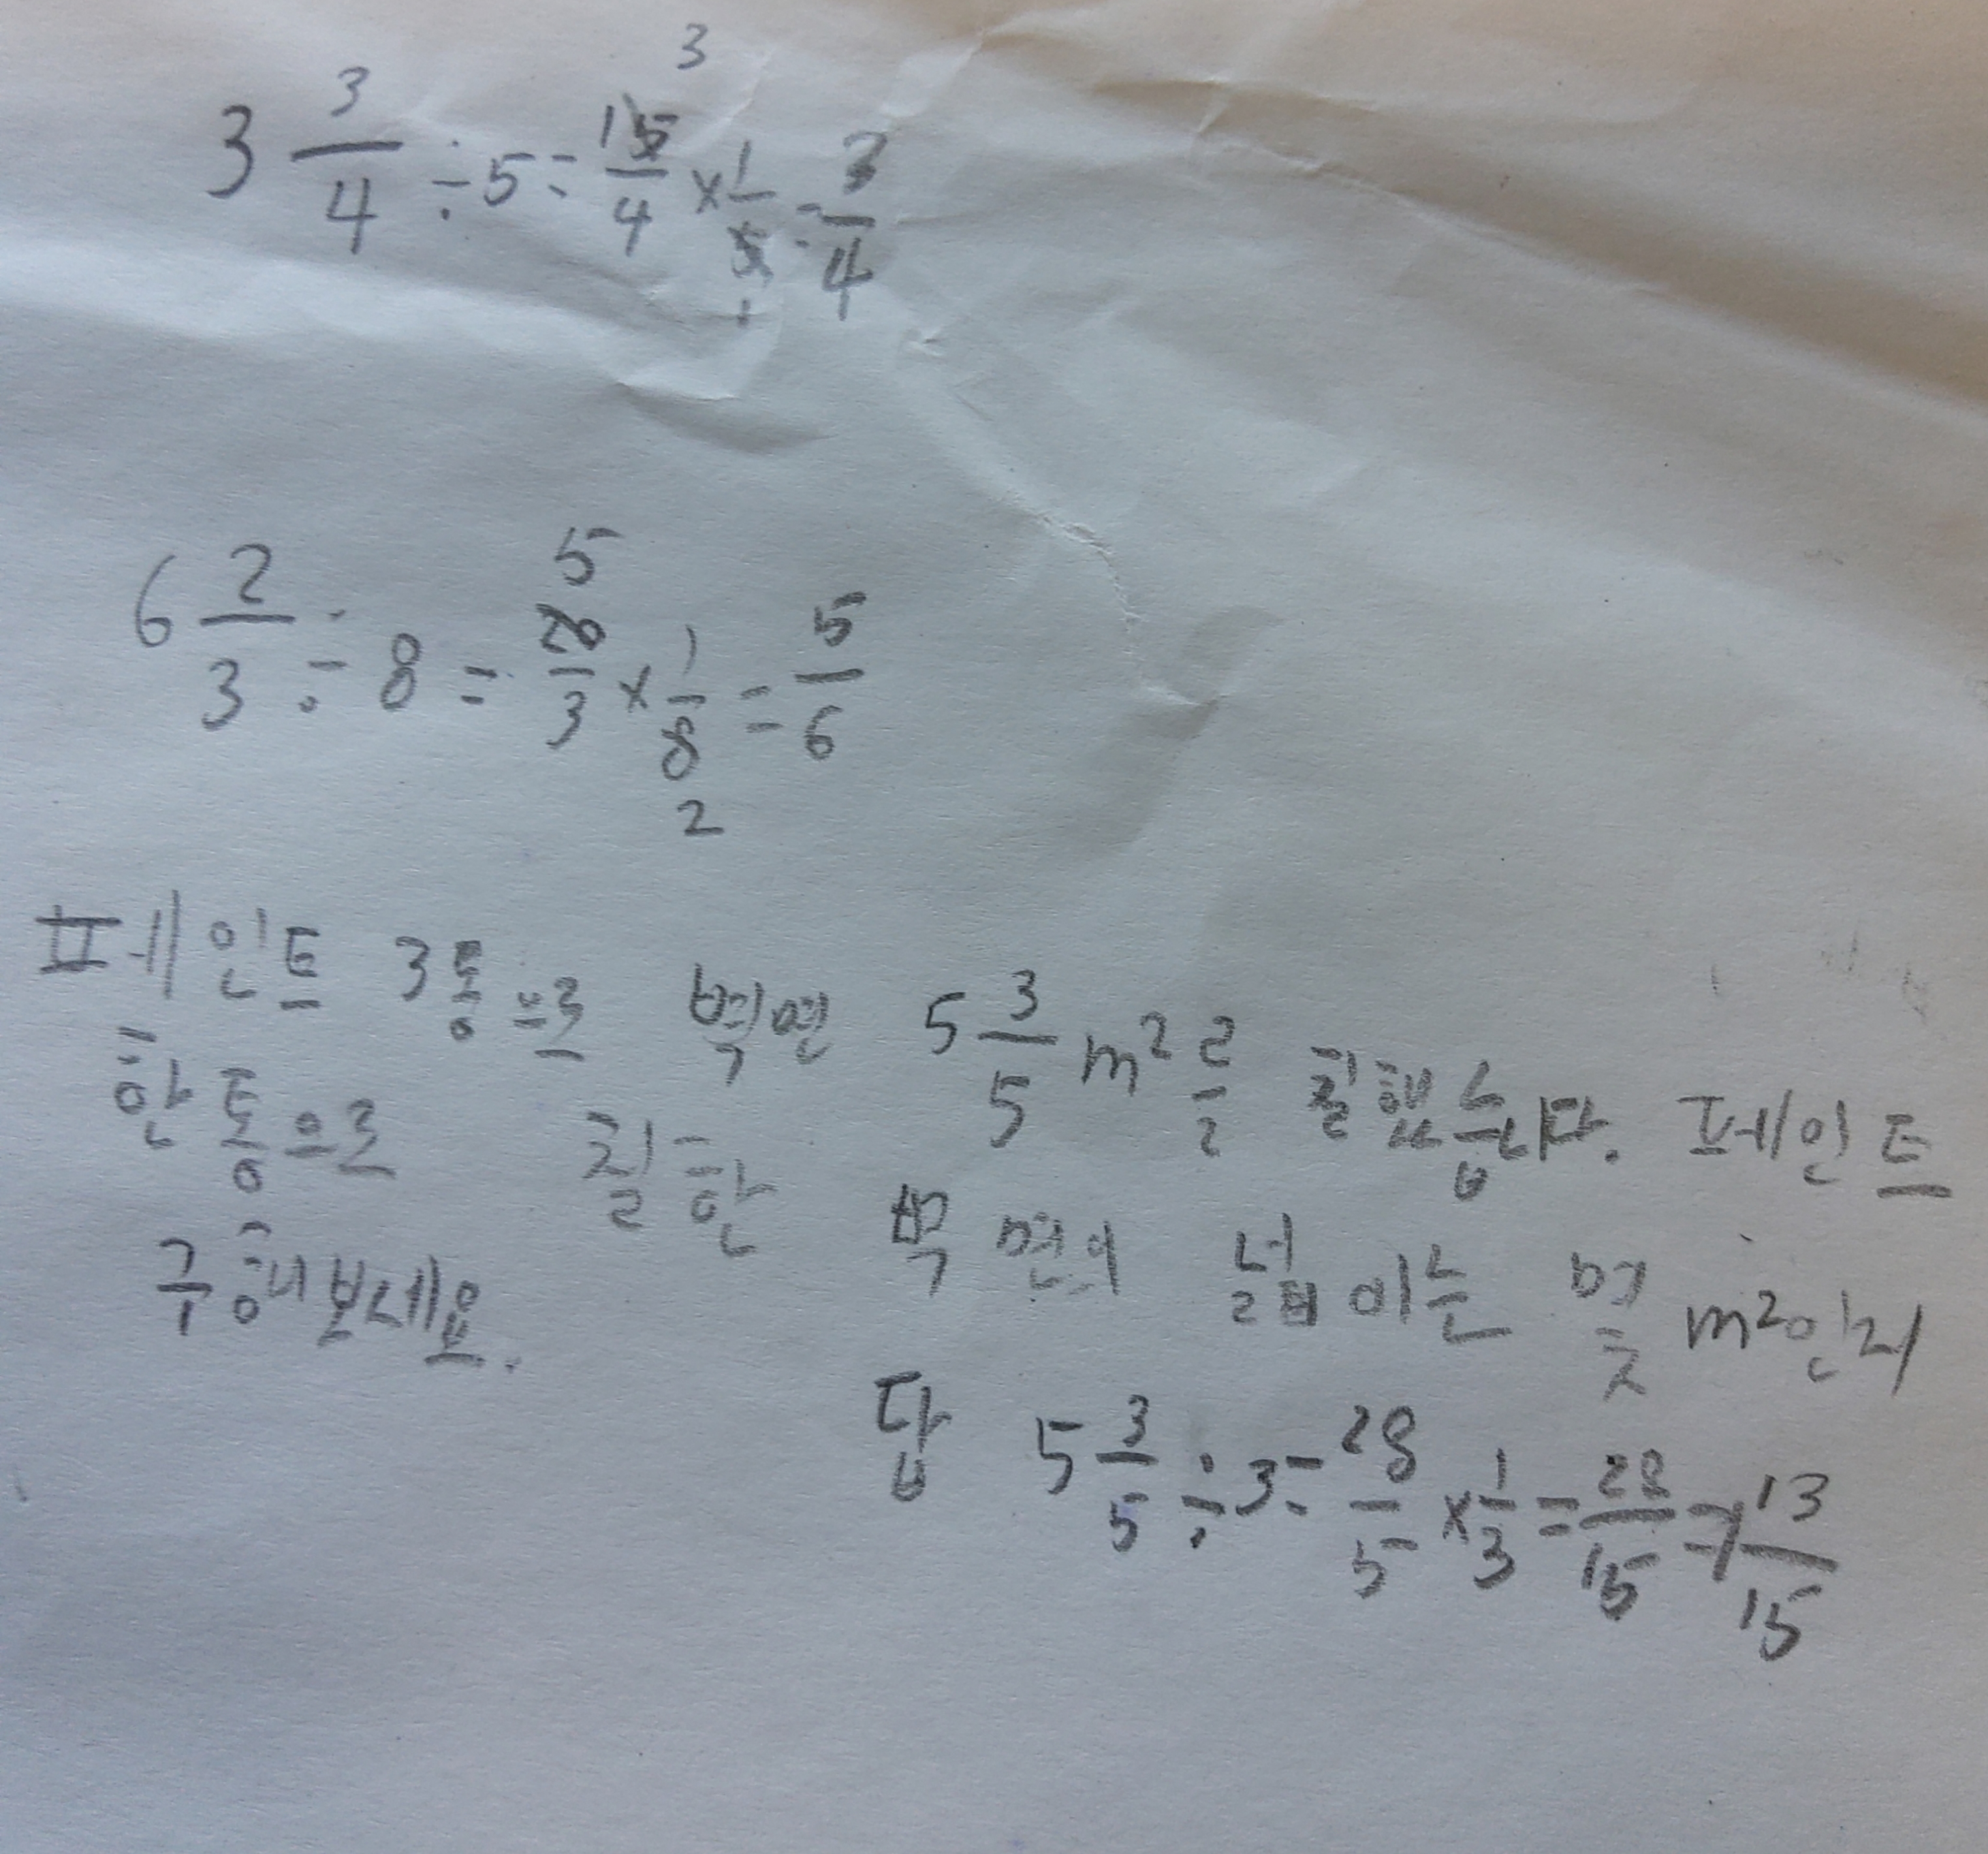 3 3/4 ÷ 5 = 15/4 × 1/5 = 3/4
3
1
6 2/3 ÷ 8 = 20/3 × 1/8 = 5/6
5
2
페인트 3통으로 벽면 5 3/5 m²를 칠했습니다. 페인트
한통으로 칠한 벽면의 넓이는 몇 m²인지
구해보세요.
답 5 3/5 ÷ 3 = 28/5 × 1/3 = 28/15 = 1 13/15